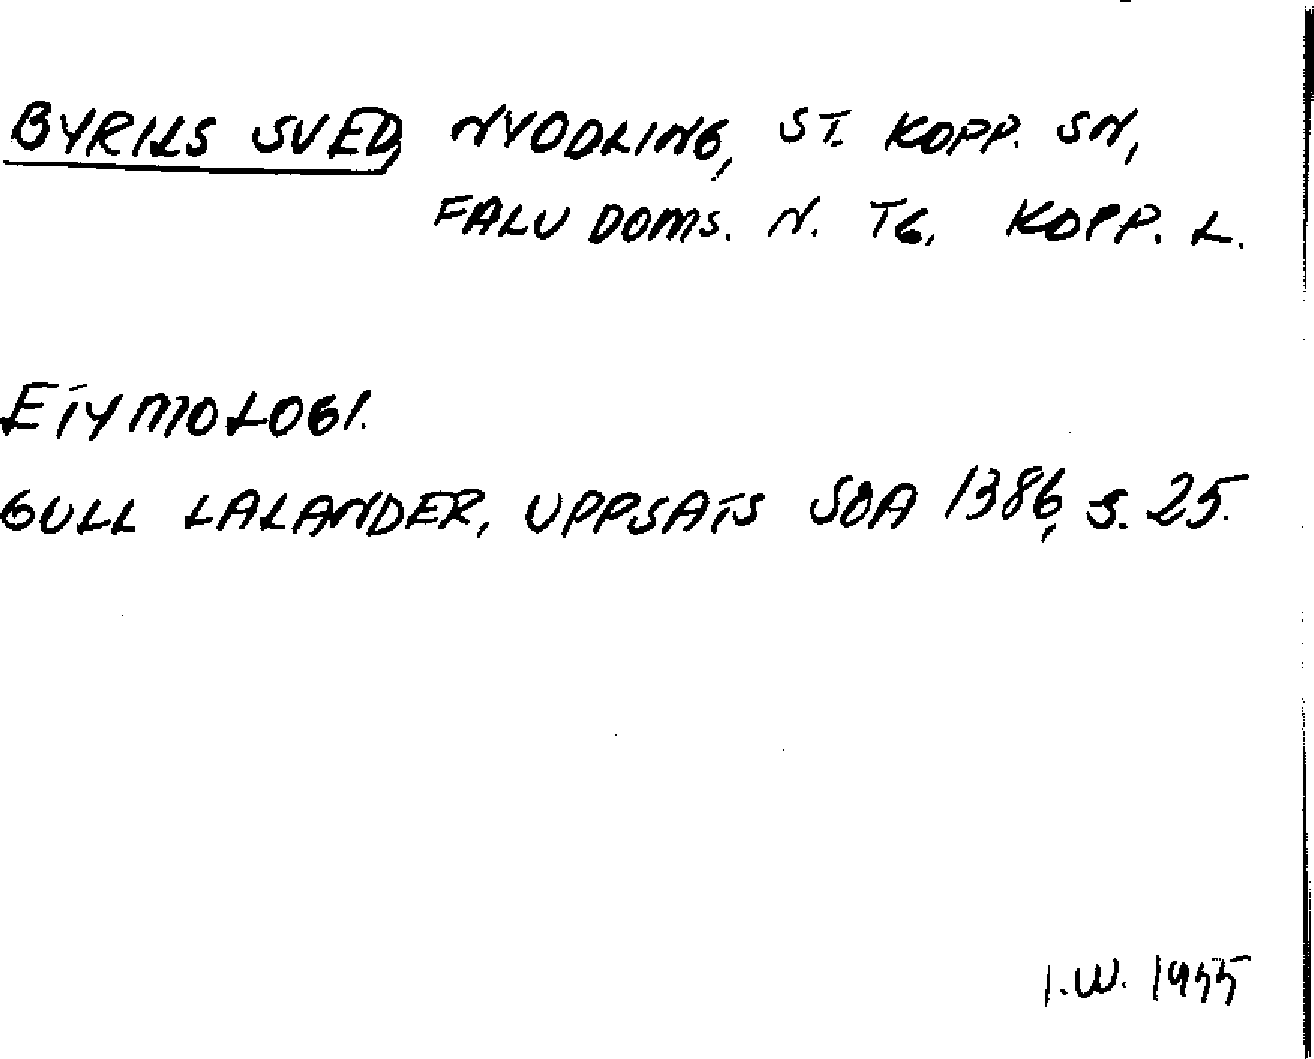 BYRILS SVED, NYODLING, ST. KOPP. SN,
FALU DOMS. N. TG. KOPP. L.
ETYMOLOGI.
GULL LALANDER, UPPSATS SOA 1386, S. 25.
I.W. 1955